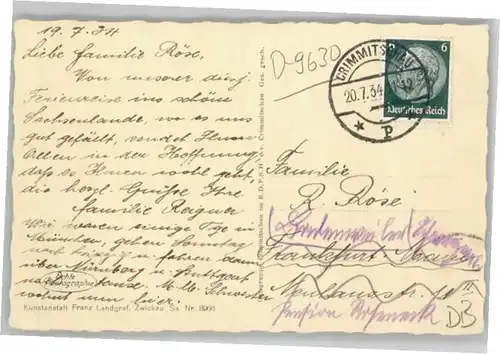 19.7.34
Liebe Familie Röse.
Von unserer diesj.
Ferienreise ins schöne
Sachsenlande, wo es uns
gut gefällt, sendet Ihnen
Allen in der Hoffnung,
daß es Ihnen wohl geht,
die herzl. Grüsse Ihre
Familie Reigner
Wir waren einige Tge in
München, gehen Sonntag
und fahren dann
über Nürnberg u. Stuttgart
nach Hause. M. lb. Schwester
wohnt nun hier.
Echte
Photographie
Kunstanstalt Franz Landgraf, Zwickau Sa. Nr. 8966
Ges. gesch.
D-9630
CRIMMITSCHAU
20.7.34
P
6
Deutsches Reich
Familie
R. Röse
Badenweiler
Frankfurt
Pension
II
DB